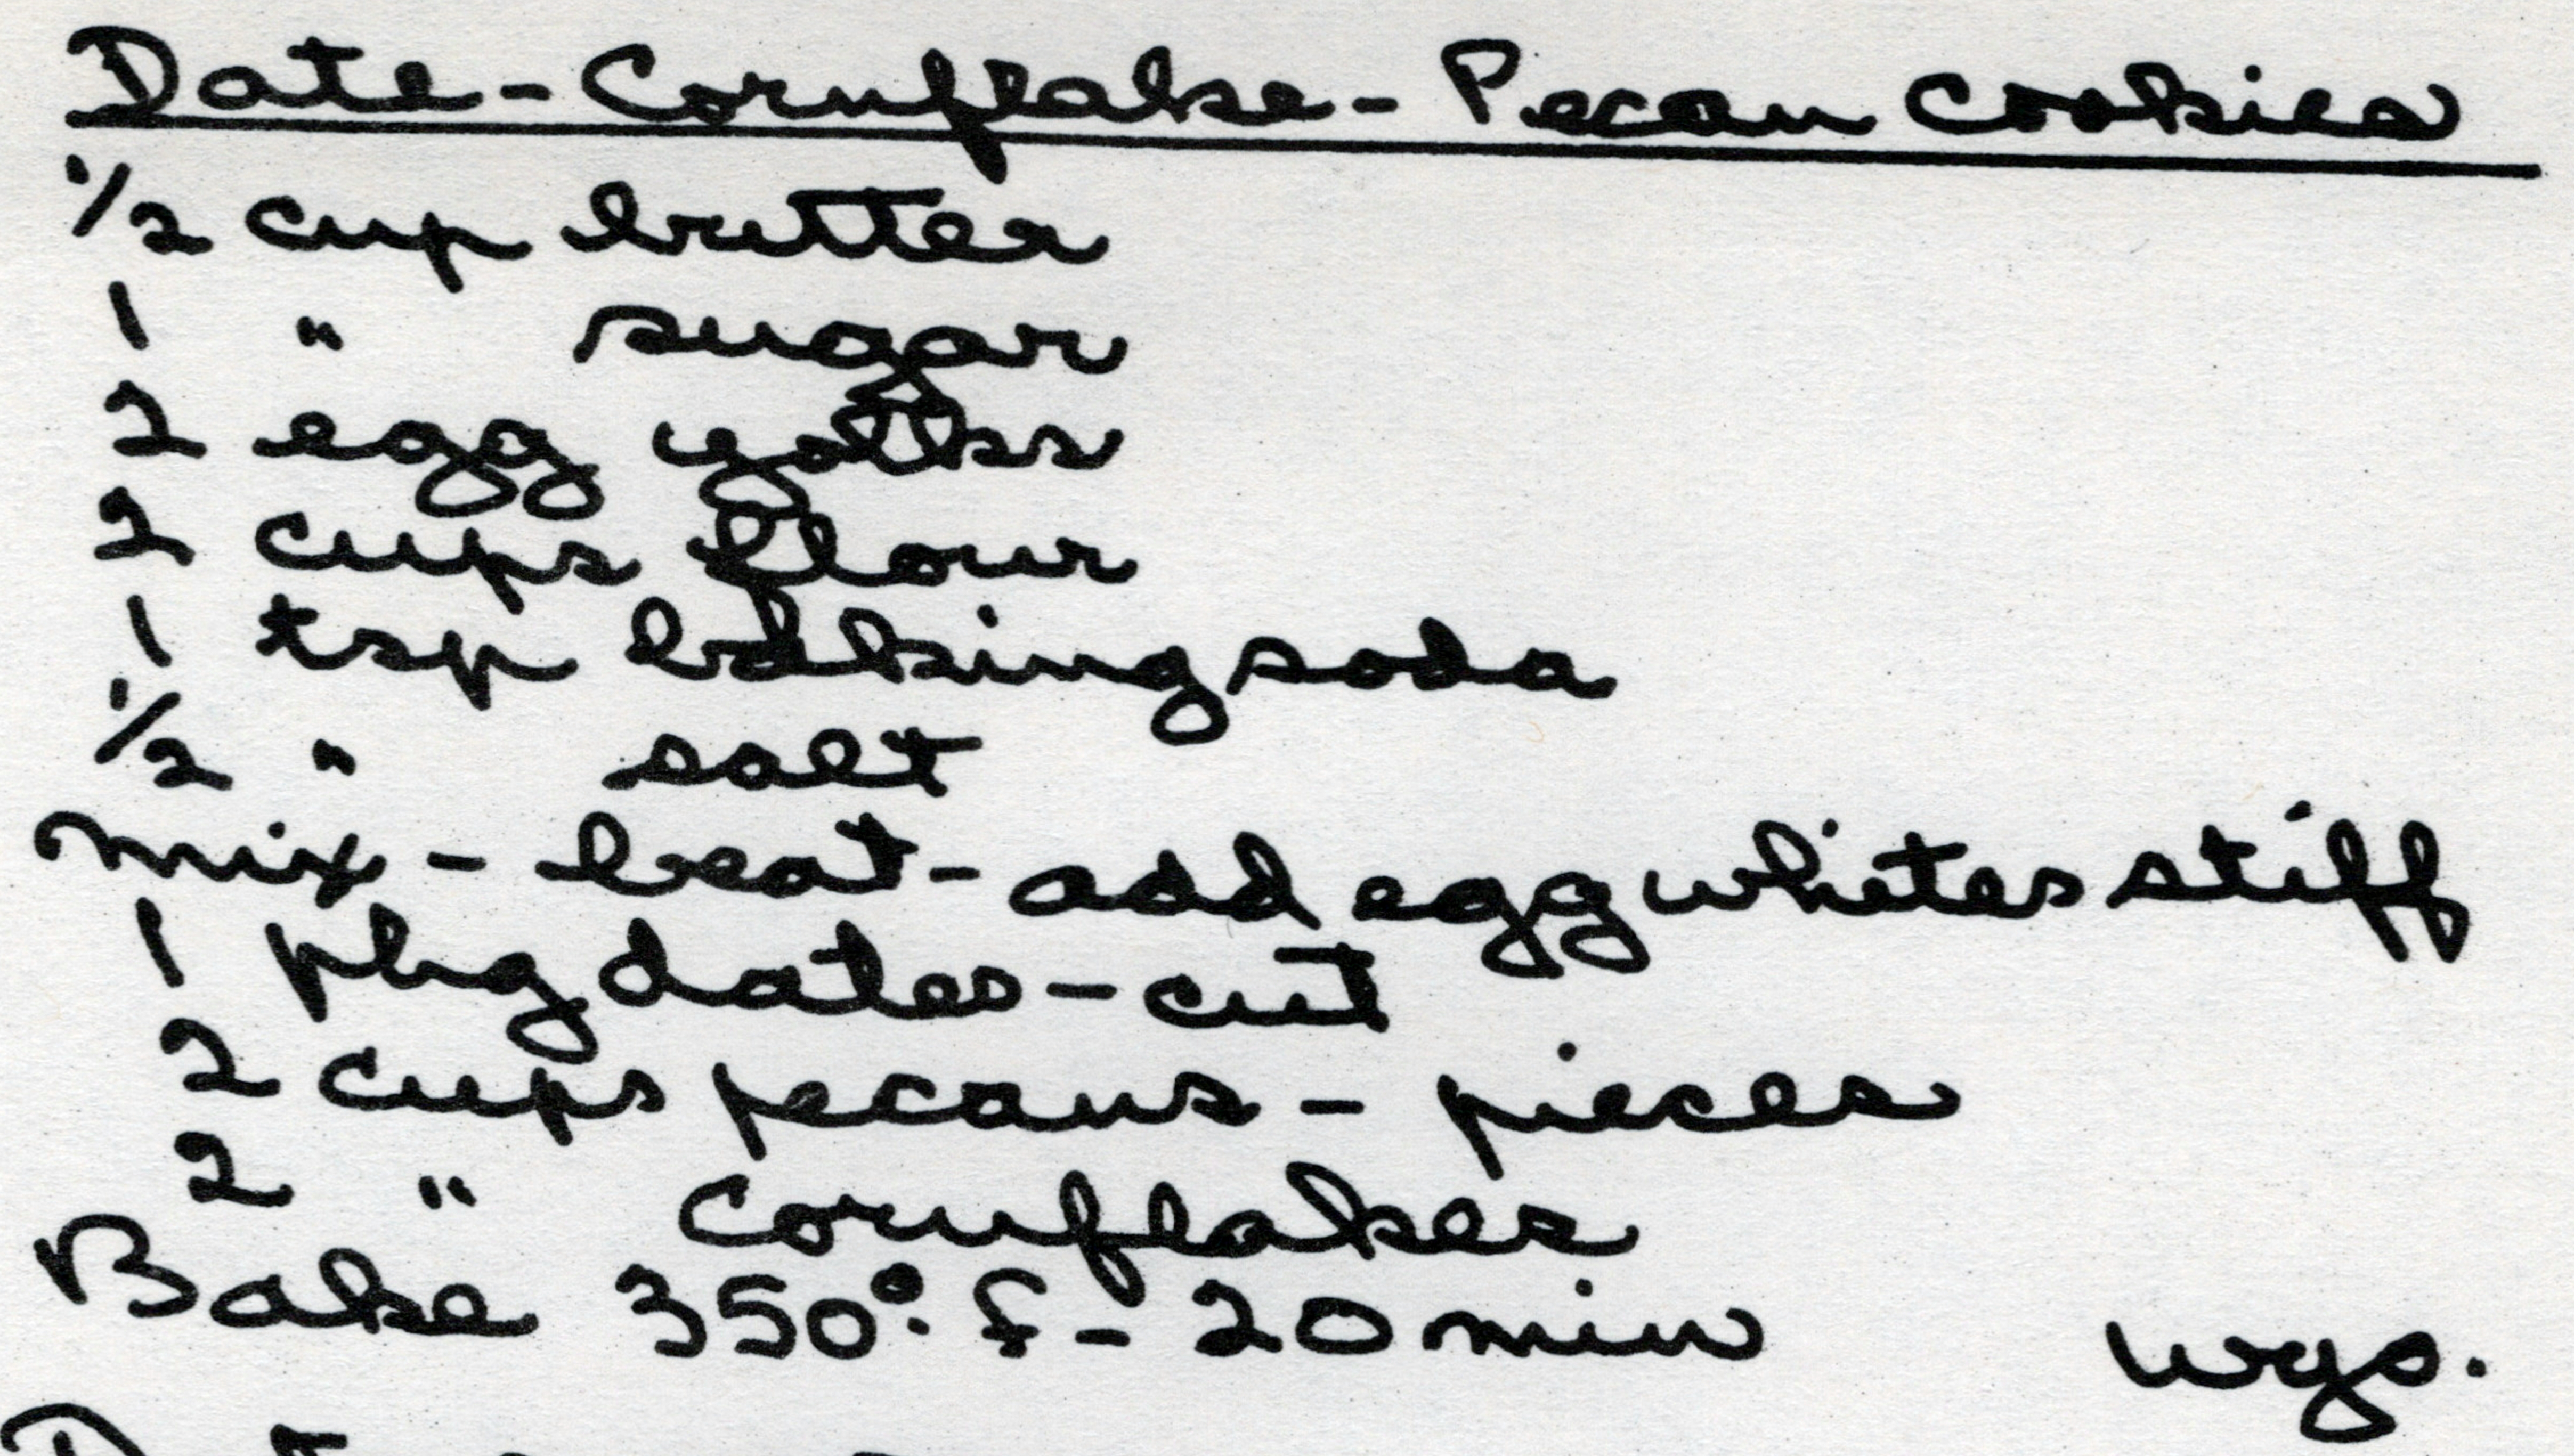 Date-Cornflake-Pecan Cookies
1/2 cup butter
1 " sugar
2 egg yolks
2 cups flour
1 tsp baking soda
1/2 " salt
mix - beat - add egg whites stiff
1 pkg dates - cut
2 cups pecans - pieces
2 " cornflakes
Bake 350° F - 20 min wys.